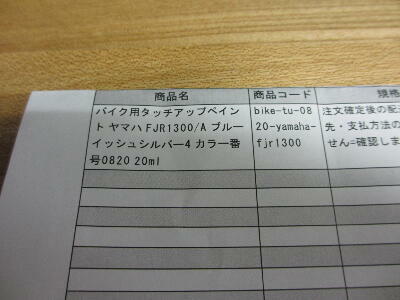 商品名
商品コード
規格
バイク用タッチアップペイン
ト ヤマハ FJR1300/A ブルー
イッシュシルバー4 カラー番
号0820 20ml
bike-tu-08
20-yamaha-
fjr1300
注文確定後の配
先・支払方法の
せん=確認しま